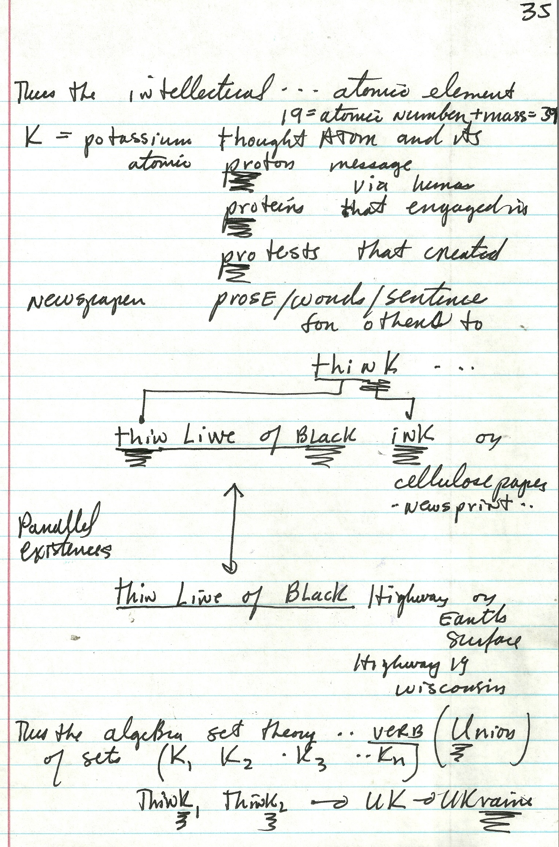 35
Thus the intellectual ... atomic element
19 = atomic number + mass = 39
K = potassium thought Atom and its
atomic proton message
via human
proteins that engaged in
protests that created
newspaper prosE/words/sentence
for others to
thinK ....
thin Line of Black inK on
cellulose paper
- newsprint ..
Parallel
existences
thin Line of Black Highway on
Earth
Surface
Highway 19
Wisconsin
Thus the algeBra set theory .. verB (Union)
of sets (K1 K2 . K3 .. Kn)
ThinK1 ThinK2 → UK → UKraine